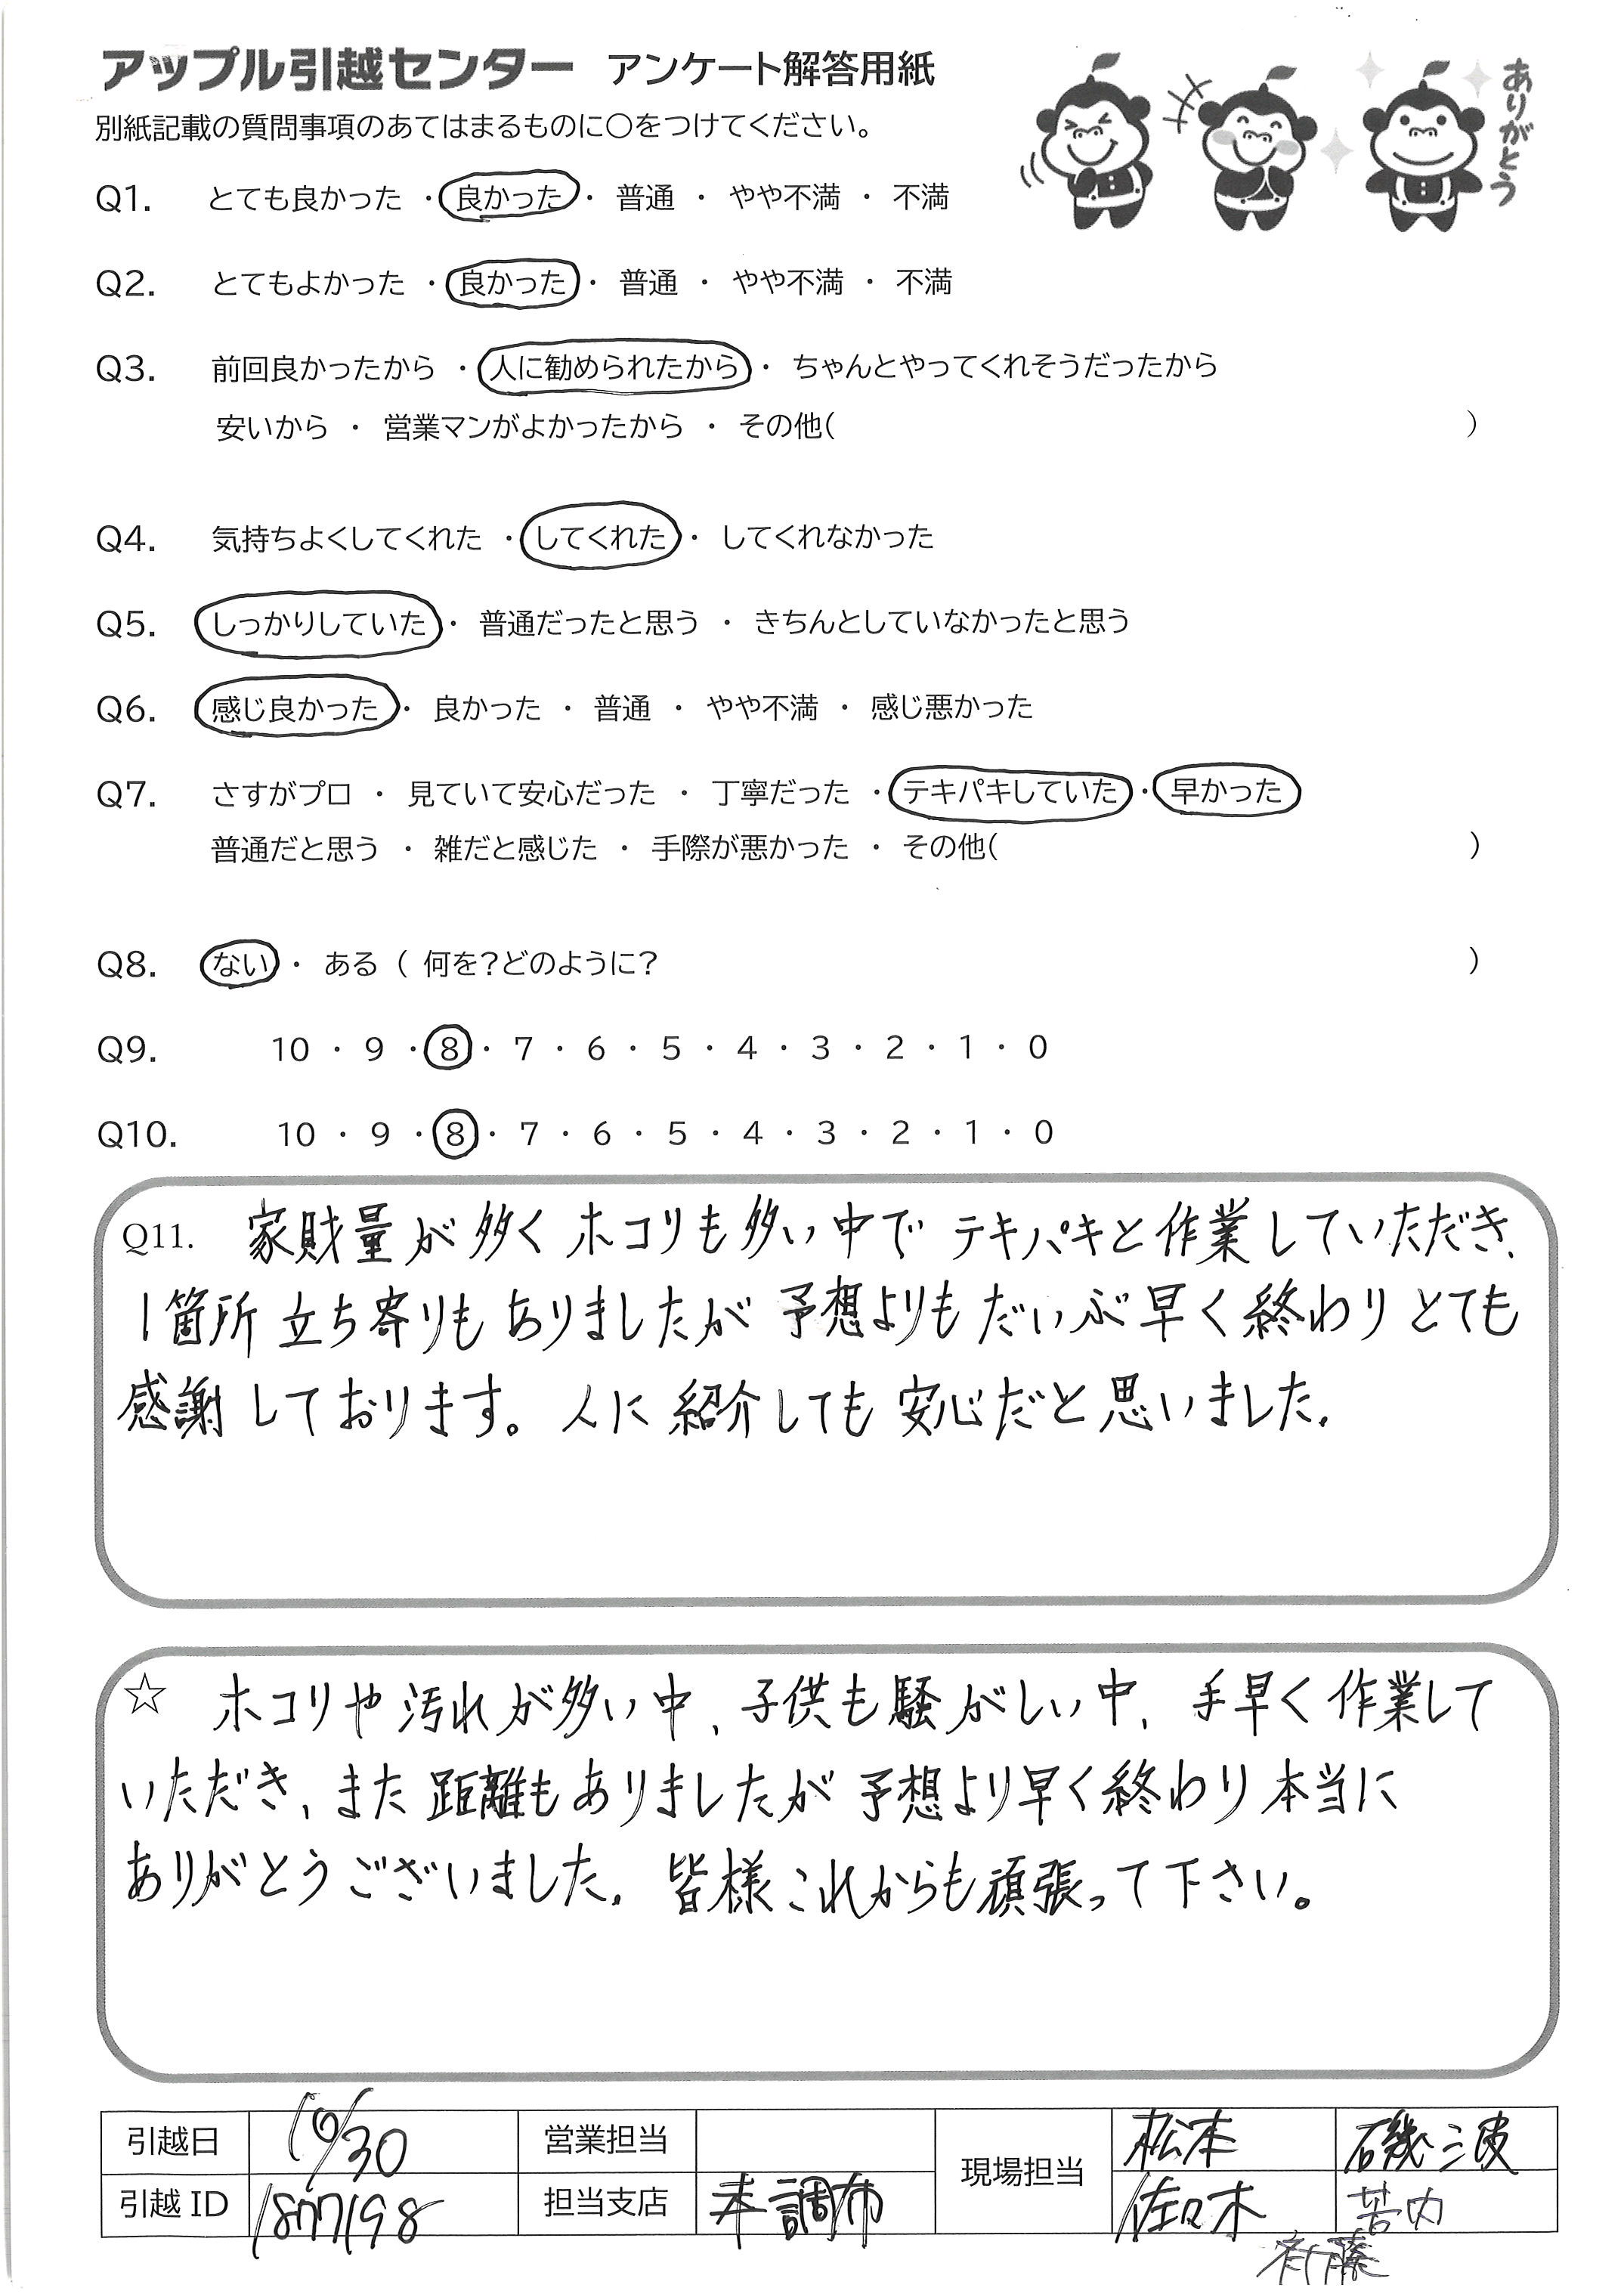 アップル引越センター アンケート解答用紙
ありがとう
別紙記載の質問事項のあてはまるものに○をつけてください。
Q1. とても良かった ・ 良かった ・ 普通 ・ やや不満 ・ 不満
Q2. とてもよかった ・ 良かった ・ 普通 ・ やや不満 ・ 不満
Q3. 前回良かったから ・ 人に勧められたから ・ ちゃんとやってくれそうだったから
安いから ・ 営業マンがよかったから ・ その他( )
Q4. 気持ちよくしてくれた ・ してくれた ・ してくれなかった
Q5. しっかりしていた ・ 普通だったと思う ・ きちんとしていなかったと思う
Q6. 感じ良かった ・ 良かった ・ 普通 ・ やや不満 ・ 感じ悪かった
Q7. さすがプロ ・ 見ていて安心だった ・ 丁寧だった ・ テキパキしていた ・ 早かった
普通だと思う ・ 雑だと感じた ・ 手際が悪かった ・ その他( )
Q8. ない ・ ある ( 何を?どのように? )
Q9. 10 ・ 9 ・ 8 ・ 7 ・ 6 ・ 5 ・ 4 ・ 3 ・ 2 ・ 1 ・ 0
Q10. 10 ・ 9 ・ 8 ・ 7 ・ 6 ・ 5 ・ 4 ・ 3 ・ 2 ・ 1 ・ 0
Q11. 家財量が多くホコリも多い中でテキパキと作業していただき、
1箇所立ち寄りもありましたが予想よりもだいぶ早く終わりとても
感謝しております。人に紹介しても安心だと思いました。
☆ ホコリや汚れが多い中、子供も騒がしい中、手早く作業して
いただき、また距離もありましたが予想より早く終わり本当に
ありがとうございました。皆様これからも頑張って下さい。
引越日 10/30 営業担当 現場担当 松本 磯三波
引越ID 1877198 担当支店 調布 佐々木